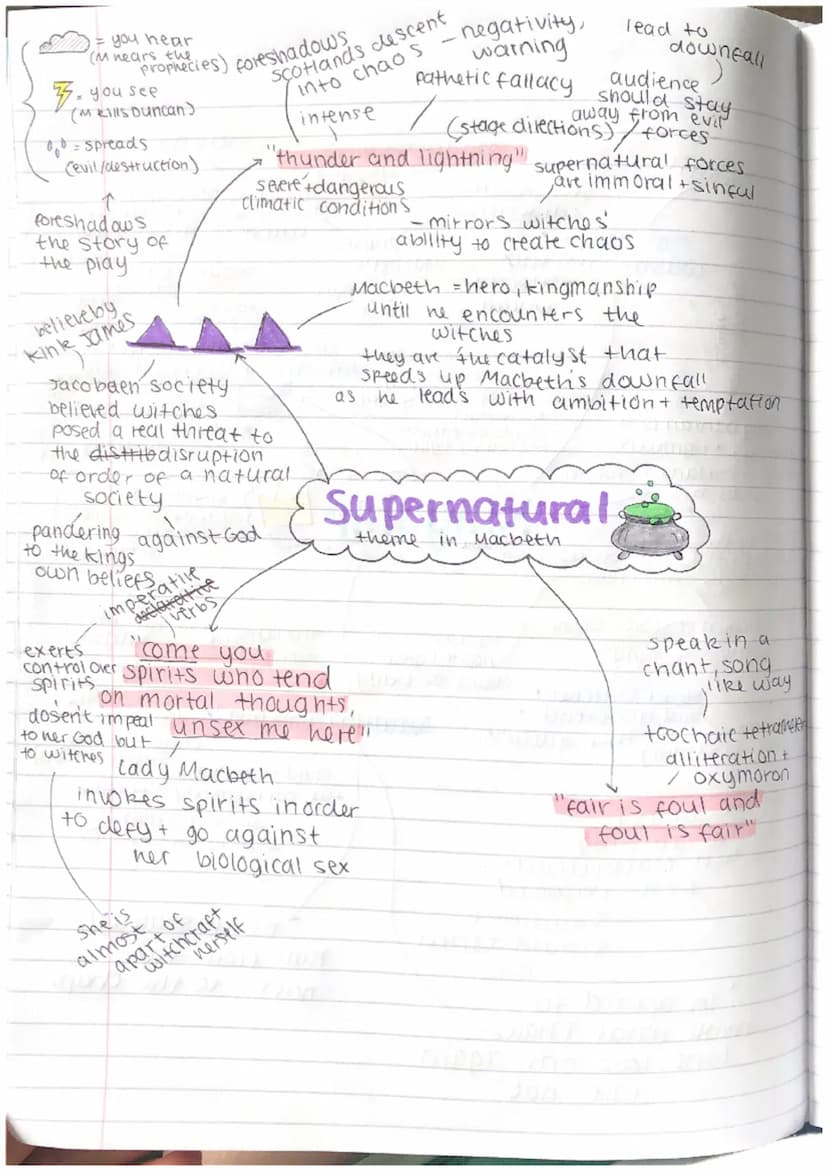 = you hear
(M hears the
prophecies)
= you see
(M kills Duncan)
= spreads
(evil/destruction)
foreshadows
the story of
the play
foreshadows
scotlands descent
into chaos
- negativity,
warning
pathetic fallacy
intense
(stage directions)
"thunder and lightning"
severe + dangerous
climatic conditions
lead to
downfall
audience
should stay
away from evil
forces
supernatural forces
are immoral + sinful
- mirrors witches'
ability to create chaos
Macbeth = hero, kingmanship
until he encounters the
witches
they are the catalyst that
speeds up Macbeth's downfall
as he leads with ambition + temptation
believe by
Kink James
Jacobaen society
believed witches
posed a real threat to
the distrib disruption
of order of a natural
society
pandering
to the kings
own beliefs
against God
Supernatural
theme in Macbeth
imperative
declarative
verbs
exerts
control over
spirits
"come you
spirits who tend
on mortal thoughts,
unsex me here"
dosent impeal
to her God but
to witches
Lady Macbeth
invokes spirits in order
to defy + go against
her biological sex
she is
almost
apart of
witchcraft
herself
speak in a
chant, song
like way
trochaic tetrameter
alliteration +
oxymoron
"fair is foul and
foul is fair"